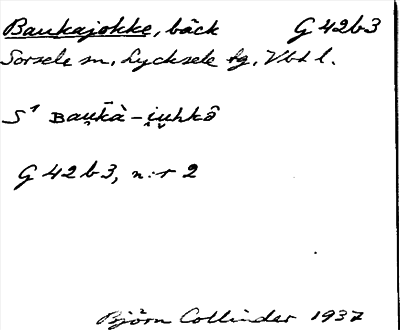 Baukajokke, bäck G 42b3
Sorsele sn, Lycksele tg, Vbt l.
S¹ Bau̯k̄à-i̯u̯hkô
G 42 b 3, n:r 2
Björn Collinder 1937